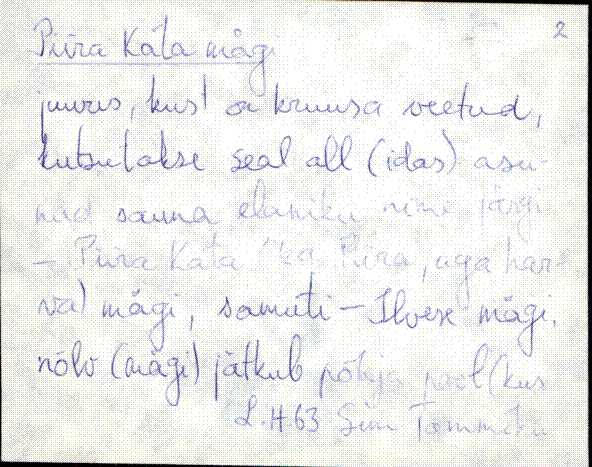 2
Piira Kata mägi
juures, kust on kruusa veetud,
kutsutakse seal all (idas) asu-
nud sauna elaniku nime järgi
- Piira Kata (ka Piira, aga har-
va) mägi, samuti - Ilvese mägi.
nõlv (mägi) jätkub põhja pool (kus
L.H.63 Siim